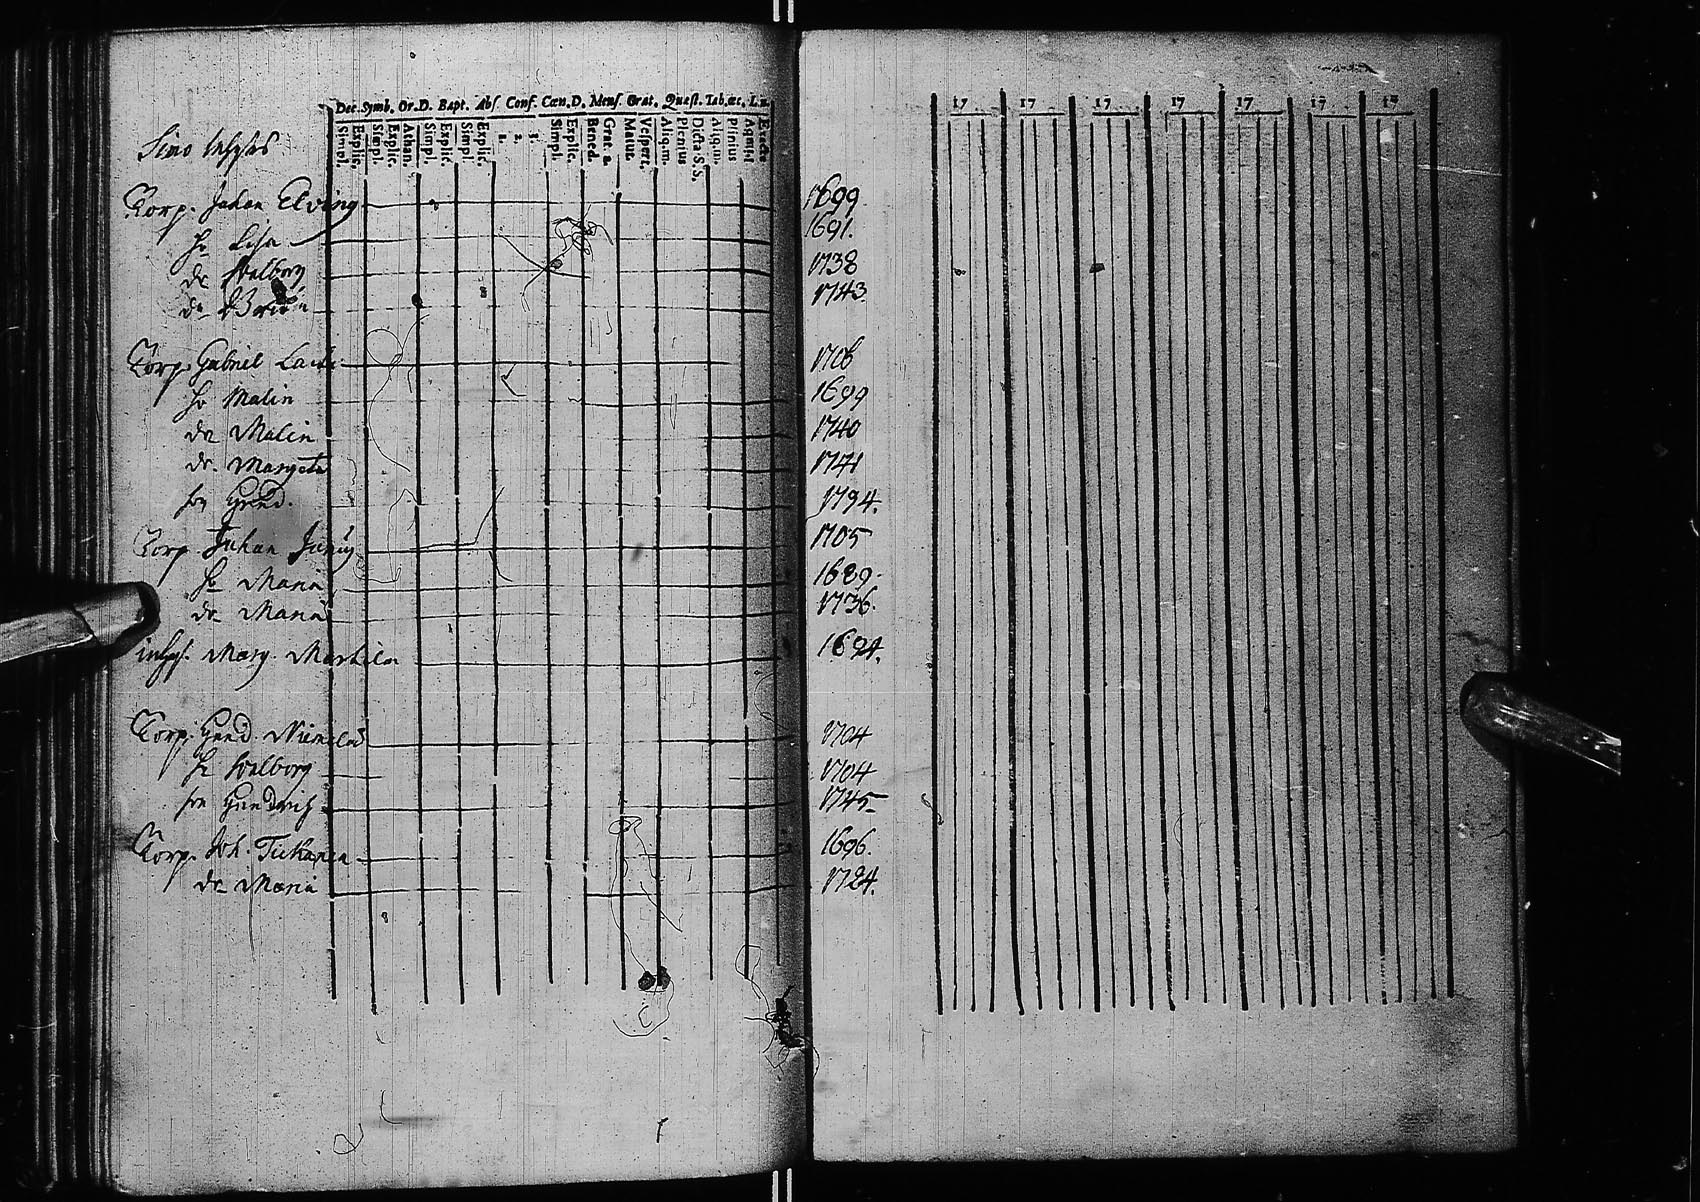 Dec. Symb. Or.D. Bapt. Abs. Conf. Cœn.D. Mens. Grat. Quæst. Tab.œc.
Simpl. Explic. Simpl. Explic. Athan. Simpl. Explic. Simpl. Explic. 1. 2. 3. Simpl. Explic. Bened. Grat. a. Matut. Vespert. Aliq.m. Plenius Dicta S.S. Aliq.m. Plenius
17 17 17 17 17 17 17
Corp. Johan Elving 1699
hu Lisa 1691.
dr Walborg 1738
dr 1743
Corp. Gabriel 1706
hu Malin 1699
dr Malin 1740
dr. Margeta 1741
son Hend. 1744.
Corp Johan 1705
hu Maria 1689.
dr Maria 1736.
inhys. Marg. 1694.
Corp. Hend. 1704
hu Walborg 1704
son Hendrich 1745
Corp. Joh. 1696.
dr Maria 1724.